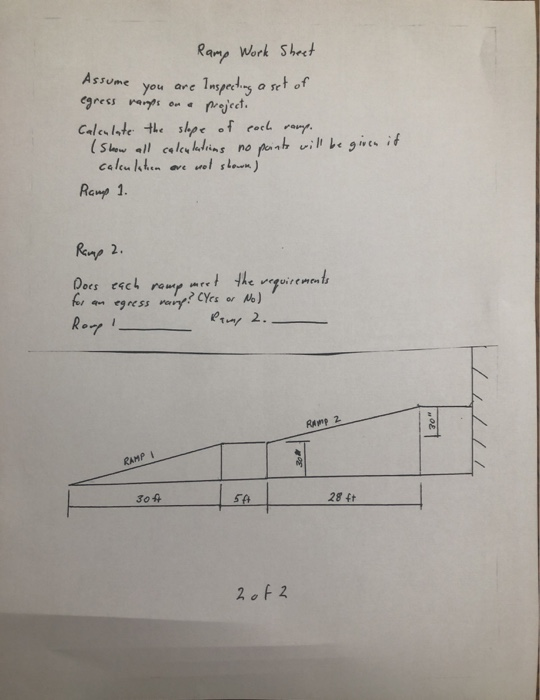 Ramp Work Sheet
Assume you are Inspecting a set of
egress ramps on a project.
Calculate the slope of each ramp.
(Show all calculations no points will be given if
calculation are not shown)
Ramp 1.
Ramp 2.
Does each ramp meet the requirements
for an egress ramp? (Yes or No)
Ramp 1 Ramp 2.
RAMP 1
RAMP 2
30"
30"
30 ft
5 ft
28 ft
2 of 2